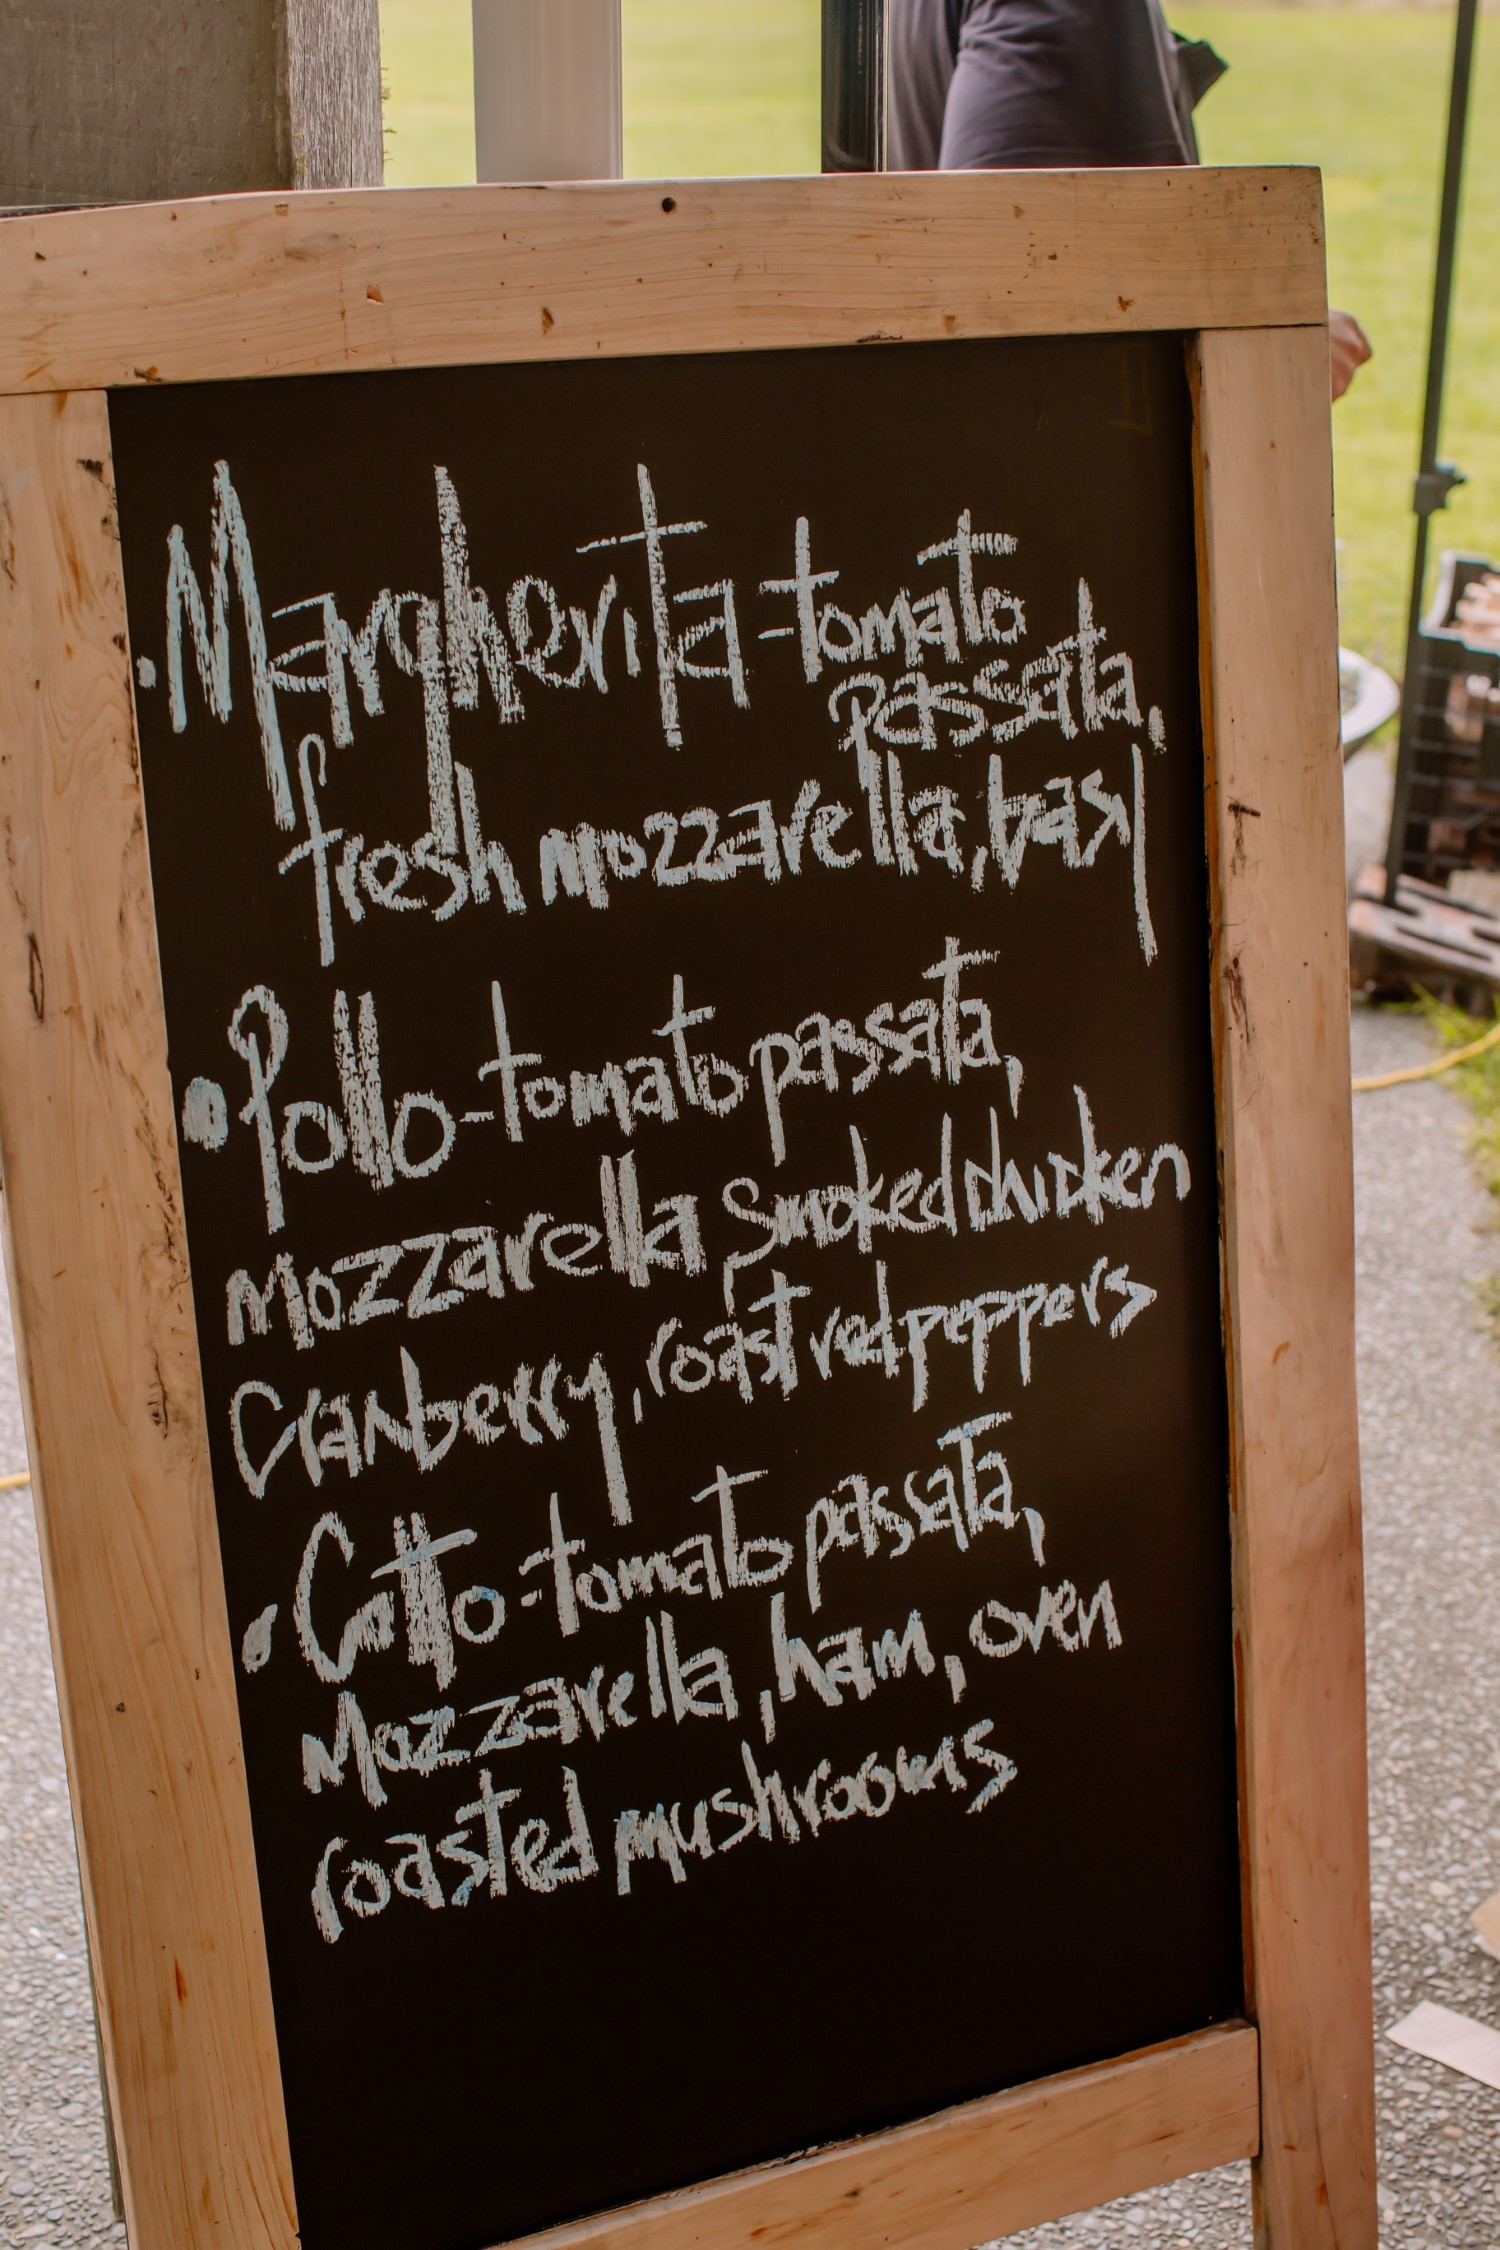 • Margherita - tomato
passata,
fresh mozzarella, basil
• Pollo - tomato passata,
mozzarella, smoked chicken
Cranberry, roast red peppers
• Cotto - tomato passata,
Mozzarella, ham, oven
roasted mushrooms